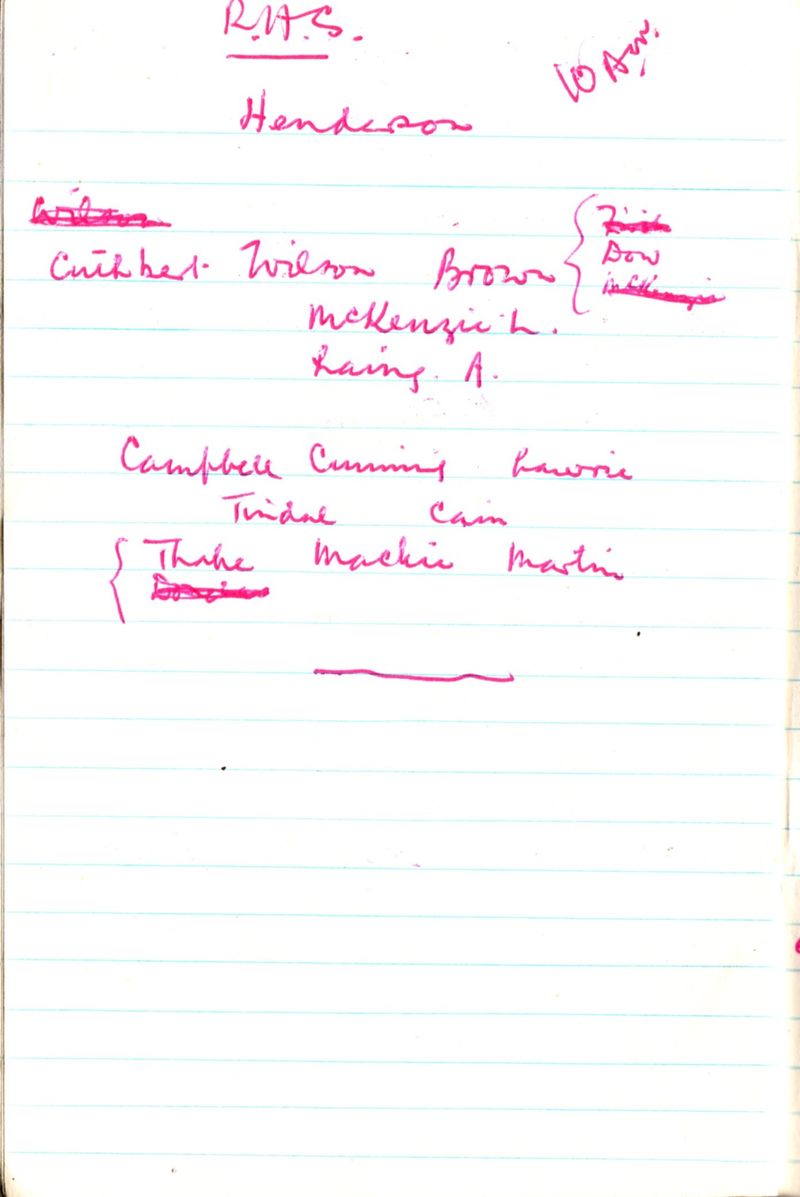 R.H.S.
10 Am.
Henderson
Wilson
Dow
Cuthbert Wilson Brown
McKenzie
McKenzie L.
Laing. A.
Campbell Cumming Lawrie
Tindal Cain
Thake Mackie Martin